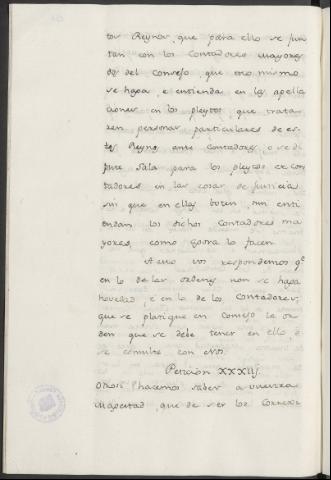 tos Reynos, que para ello se jun
tan con los Contadores mayores
dos del Consejo, que eso mismo
se haga, e entienda en las apella
ciones en los pleytos, que trata
ren personas particulares de es
tos Reynos ante Contadores, o se di
pute Sala para los pleytos de con
tadores en las cosas de justicia
sin que en ellas voten, nin enti
endan los dichos Contadores ma
yores, como agora lo facen.
A esto vos respondemos qᵉ
en lo de las ordenes non se haga
novedad, e en lo de los Contadores,
que se platique en Consejo la or
den que se debe tener en ello, e
se consulte con nos.
Peticion XXXIIj.
Otrosi hacemos saber a vuestra
Magestad, que de ser los Corregi